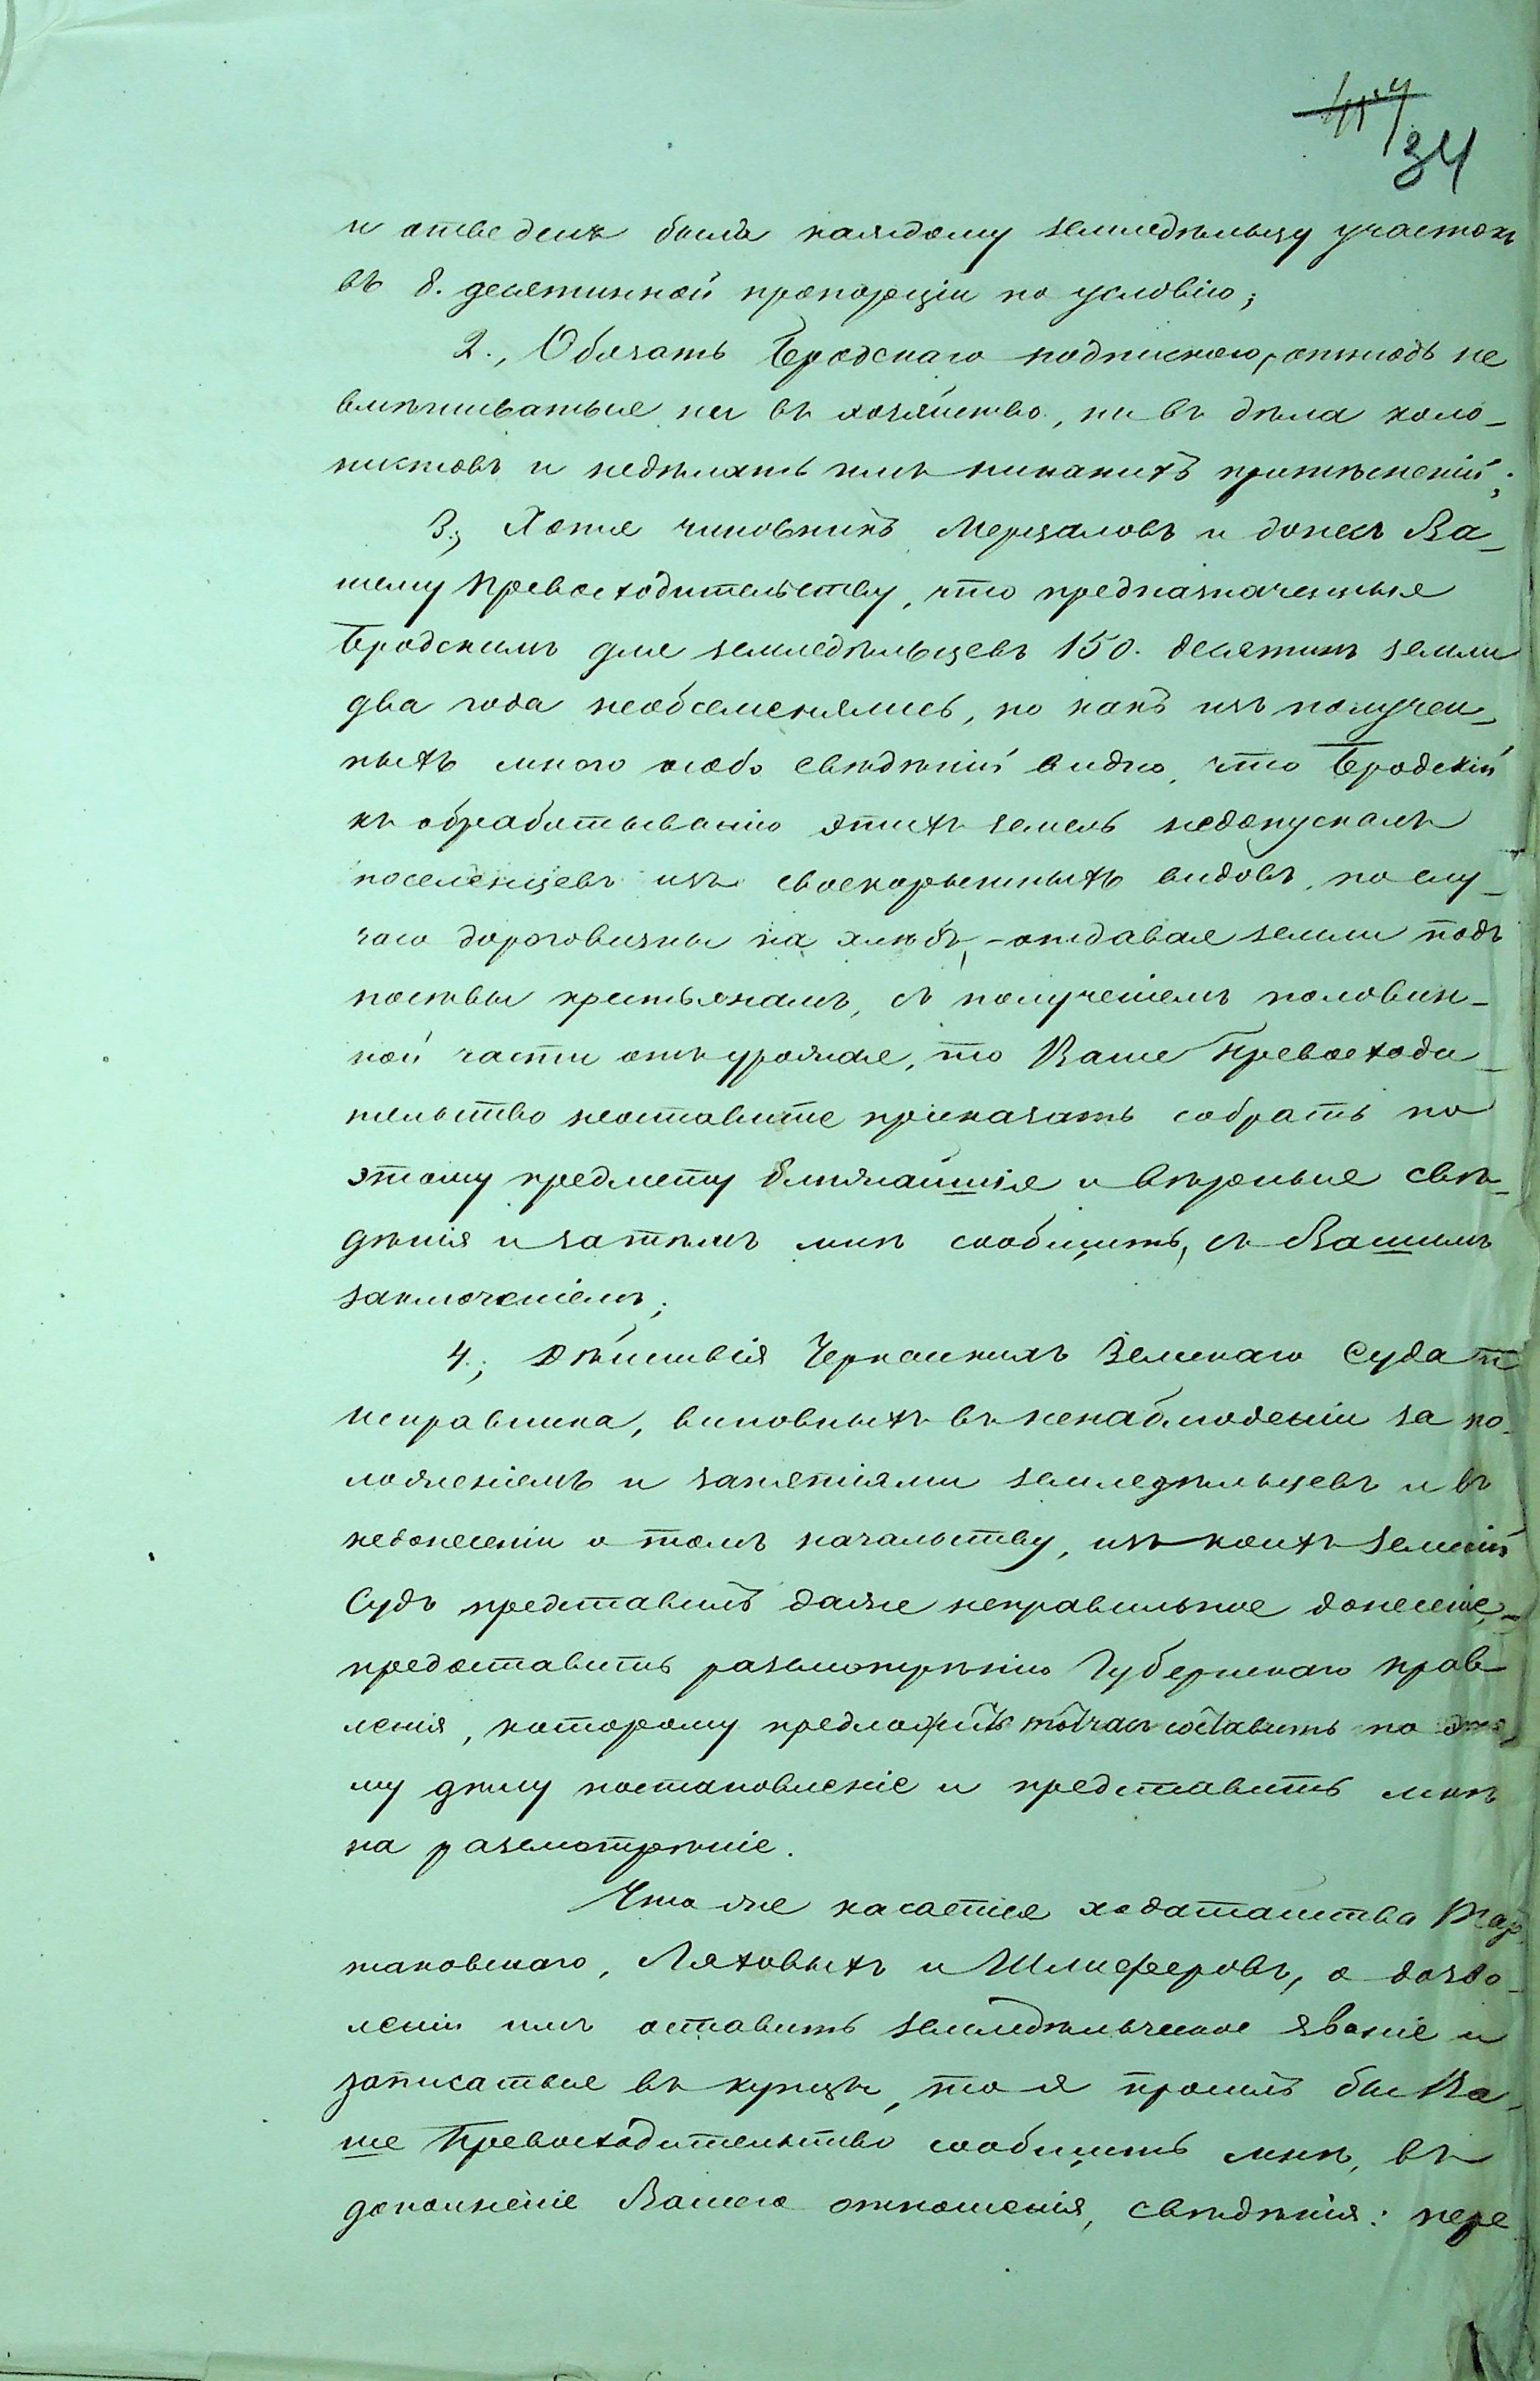 34
и отведенъ былъ каждому земледѣльцу участокъ
въ 8. десятинной пропорціи по условію;
2., Обязать Бродскаго подпискою, отнюдь не
вмѣшиваться ни въ хозяйство, ни въ дѣла коло-
нистовъ и недѣлать имъ никакихъ притѣсненій;
3., Хотя чиновникъ Мерцаловъ и донесъ Ва-
шему Превосходительству, что предназначенныя
Бродскимъ для земледѣльцевъ 150. десятинъ земли
два года необсеменялись, но какъ изъ получен-
ныхъ мною особо свѣдѣній видно, что Бродскій
къ обработыванію этихъ земель недопускалъ
поселенцевъ изъ своекорыстныхъ видовъ, по слу-
чаю дороговизны на хлѣбъ, - отдавая земли подъ
посѣвы крестьянамъ, съ полученіемъ половин-
ной части отъ урожая, то Ваше Превосходи-
тельство неоставите приказать собрать по
этому предмету ближайшія и вѣрныя свѣ-
дѣнія и затѣмъ мнѣ сообщить, съ Вашимъ
заключеніемъ;
4., Дѣйствія Черкаскихъ Земскаго Суда и
Исправника, виновныхъ въ ненаблюденіи за по-
ложеніемъ и занятіями земледѣльцевъ и въ
недонесеніи о томъ начальству, изъ коихъ Земскій
Судъ представилъ даже неправильное донесеніе, -
предоставить разсмотрѣнію Губернскаго Прав
ленія, которому предложить тотчасъ составить по это-
му дѣлу постановленіе и представить мнѣ
на разсмотрѣніе.
Что же касается ходатайства Тар-
таковскаго, Ляховыхъ и Шлиферовъ, о дозво-
леніи имъ оставить земледѣльческое званіе и
записаться въ купцы, то я просилъ бы Ва-
ше Превосходительство сообщить мнѣ, въ
дополненіе Вашего отношенія, свѣдѣнія: пере